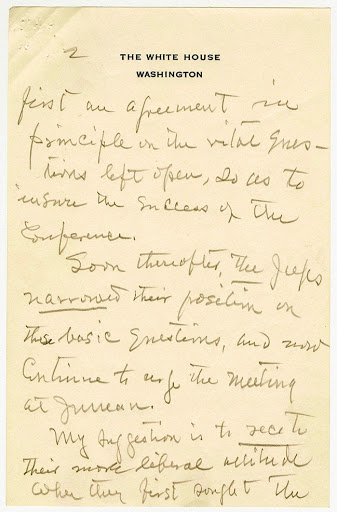 2
THE WHITE HOUSE
WASHINGTON
first an agreement in
principle on the vital ques-
tions left open, so as to
insure the success of the
Conference.
Soon thereafter, the Japs
narrowed their position on
these basic questions, and now
Continue to urge the meeting
at Juneau.
My suggestion is to recite
their more liberal attitude
when they first sought the